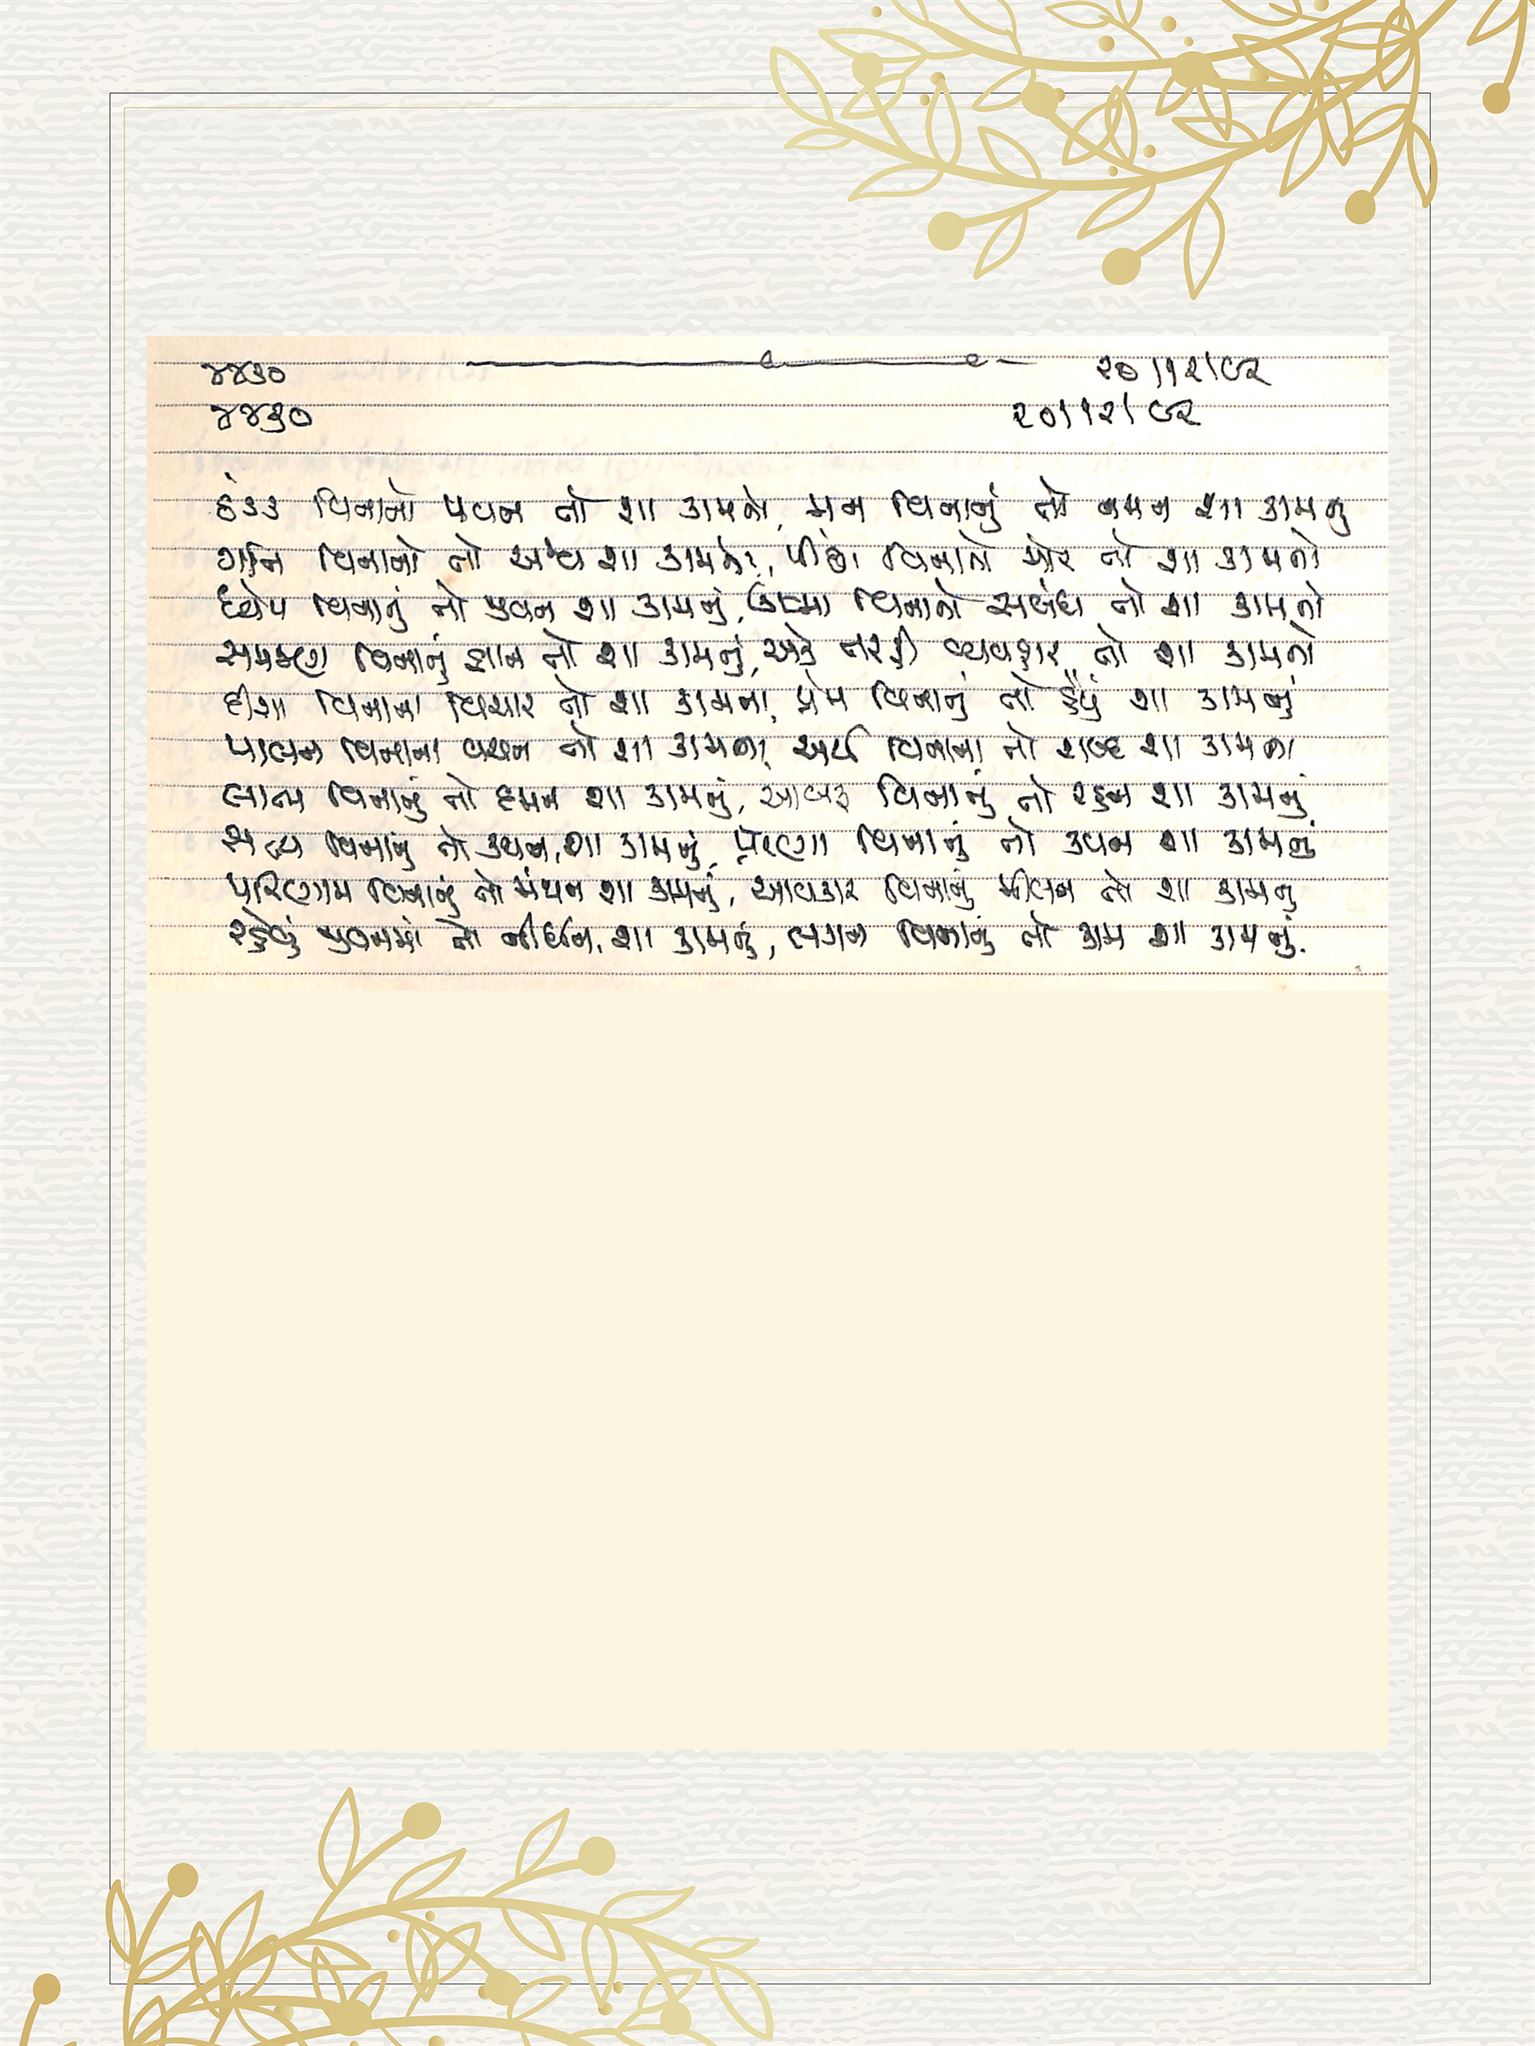 ૪૪૩૦ ૨૦/૧૨/૯૨
૪૪૩૦ ૨૦/૧૨/૯૨
ઠંડક વિનાનો પવન તો શા કામનો, મન વિનાનું તો નમન શા કામનું
ગતિ વિનાનો તો અશ્વ શા કામનો, પીંછા વિનાનો મોર તો શા કામનો
ધ્યેય વિનાનું તો જીવન શા કામનું, ઉષ્મા વિનાનો સબંધ તો શા કામનો
સમજણ વિનાનું જ્ઞાન તો શા કામનું, એક તરફી વ્યવહાર તો શા કામનો
દીશા વિનાના વિચાર તો શા કામના, પ્રેમ વિનાનું તો હૈયું શા કામનું
પાલન વિનાના વચન તો શા કામના, અર્થ વિનાના તો શબ્દ શા કામના
વિનાનું તો દમન શા કામનું, વિનાનું તો રહન શા કામનું
સત્ય વિનાનું તો કથન શા કામનું, પ્રેરણા વિનાનું તો કવન શા કામનું
પરિણામ વિનાનું તો મંથન શા કામનું, આવકાર વિનાનું મીલન તો શા કામનું
રહેવું જીવનમાં તો નીર્ધન, શા કામનું, લગન વિનાનું તો કામ શા કામનું.